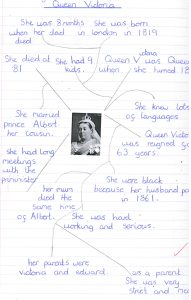 Queen Victoria
She was 8 months
when her dad
died
She was born
in london in 1819
She died at
81
She had 9
kids.
Queen V was Queen
when she turned 18
She knew lots
of languages
She married
prince Albert
her cousin.
Queen Victor
was reigned for
63 years.
she had long
meetings
with the
priminister
her mum
died the
same time
as Albert.
She wore black
because her husband pa
in 1861.
She was hard
working and serious.
her parents were
victoria and edward.
as a parent
She was very
strict and